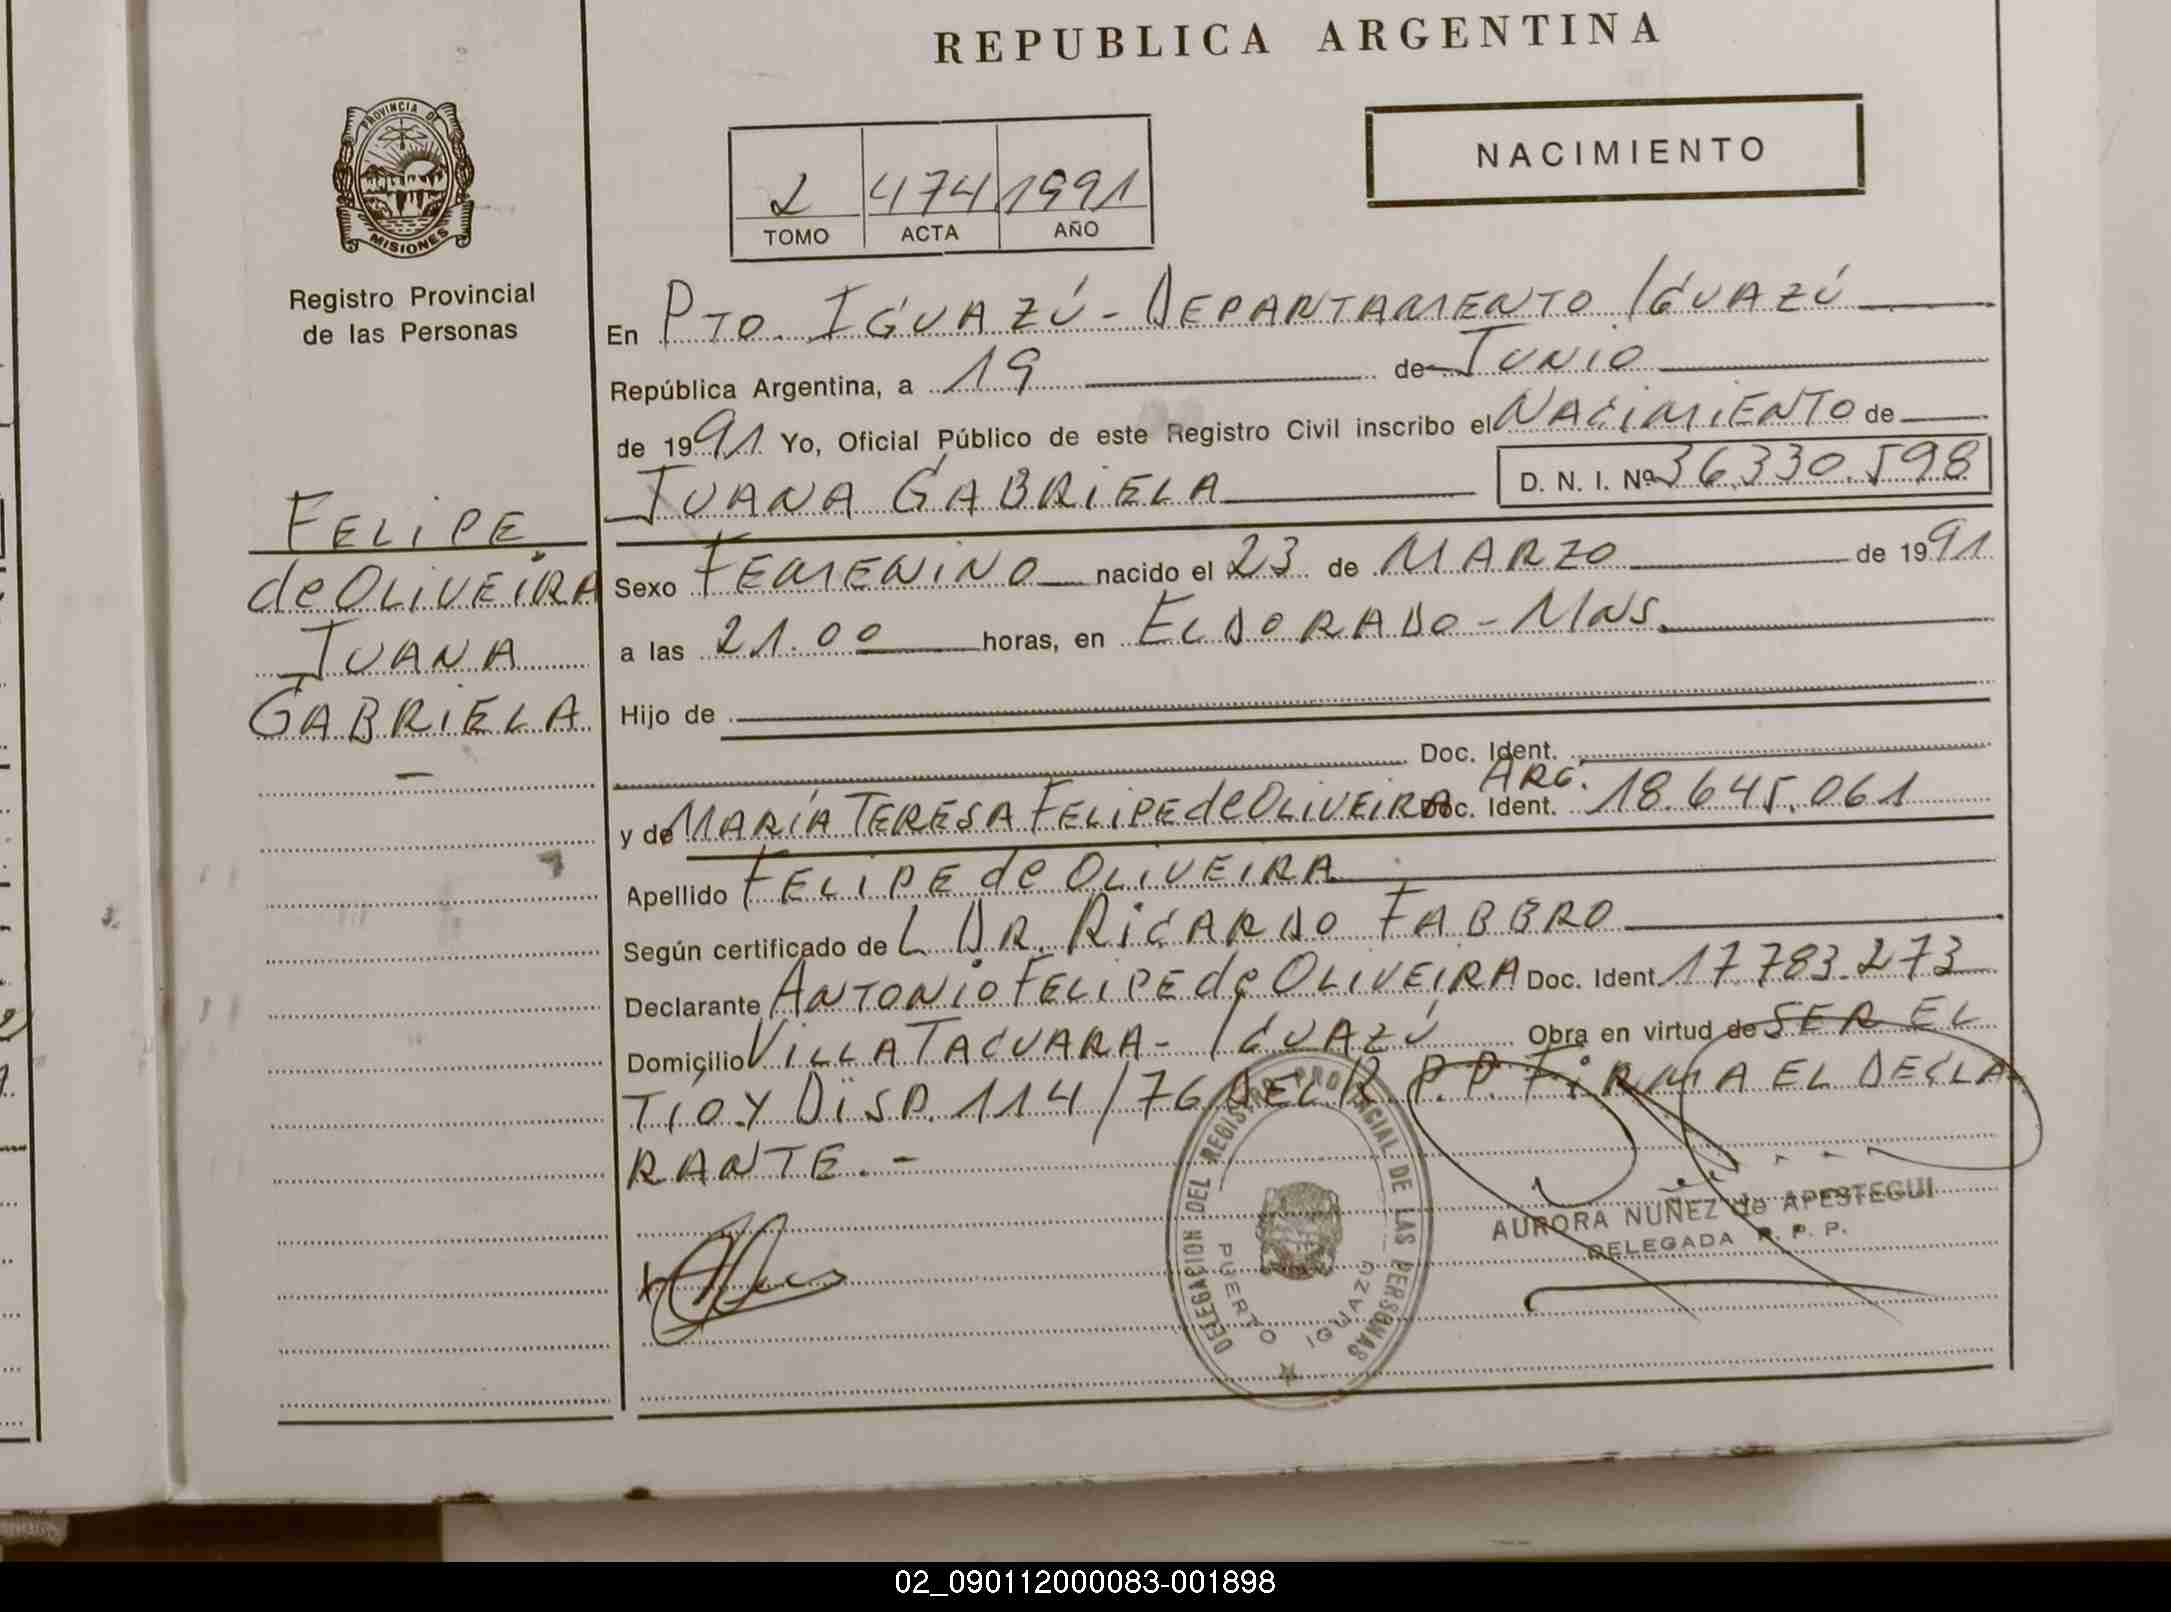 REPUBLICA ARGENTINA
PROVINCIA DE
MISIONES
Registro Provincial
de las Personas
NACIMIENTO
2 474 1991
TOMO ACTA AÑO
En PTO. IGUAZÚ - DEPARTAMENTO IGUAZÚ
República Argentina, a 19 de JUNIO
de 1991 Yo, Oficial Público de este Registro Civil inscribo el NACIMIENTO de
JUANA GABRIELA D. N. I. Nº 36.330.598
FELIPE
de OLIVEIRA
JUANA
GABRIELA
-
Sexo FEMENINO nacido el 23 de MARZO de 1991
a las 21.00 horas, en ELDORADO - MNS.
Hijo de
Doc. Ident.
y de MARÍA TERESA FELIPE de OLIVEIRA Doc. Ident. ARG. 18.645.061
Apellido FELIPE de OLIVEIRA
Según certificado de L DR. RICARDO FABBRO
Declarante ANTONIO FELIPE de OLIVEIRA Doc. Ident 17783.273
Domicilio VILLA TACUARA - IGUAZÚ Obra en virtud de SER EL
TÍO Y DISP. 114/76 DEL R.P.P. FIRMA EL DECLA
RANTE. -
DELEGACION DEL REGISTRO PROVINCIAL DE LAS PERSONAS
PUERTO IGUAZU
AURORA NUÑEZ de APESTEGUI
DELEGADA R. P. P.
02_090112000083-001898